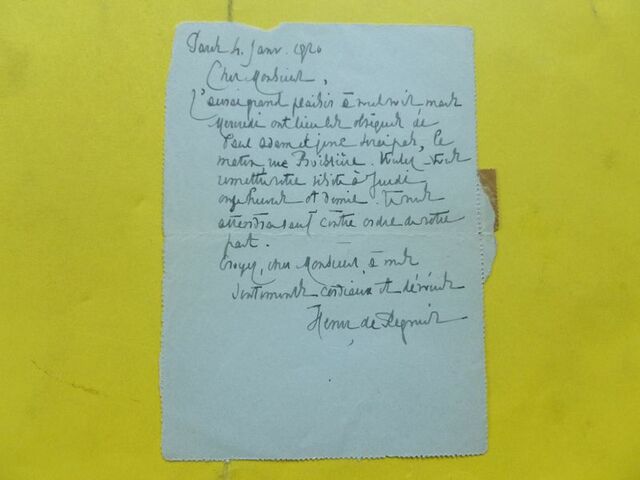 Paris 4. Janv. 1920
Cher Monsieur,
J'aurai grand plaisir à vous voir mais
Mercredi ont lieu les obsèques de
Paul Adam et je ne serai pas, le
matin, rue Boissière. Voulez-vous
remettre votre visite à Jeudi
onze heures et demie. Je vous
attendrai sauf contre ordre de votre
part.
Croyez, cher Monsieur, à mes
sentiments cordiaux et dévoués
Henri de Régnier